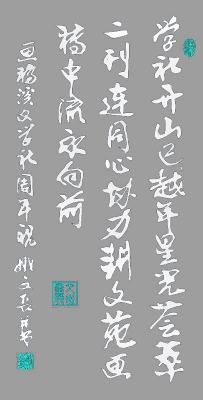 学社开山已越年星光荟萃
二刊连同心协力耕文苑画
桥中流永向前
画桥溪文学社周年祝